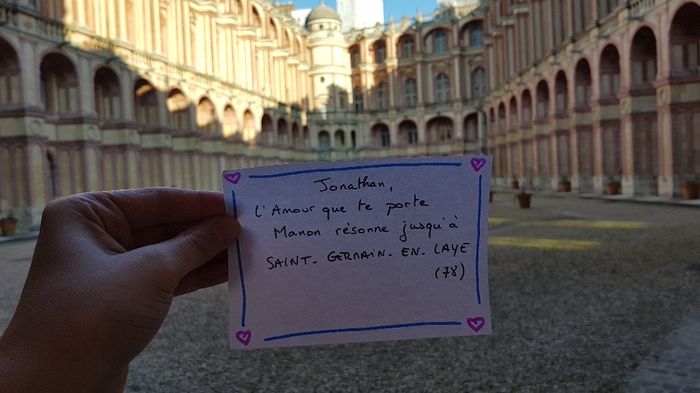 Jonathan,
L'Amour que te porte
Manon résonne jusqu'à
SAINT-GERMAIN-EN-LAYE
(78)